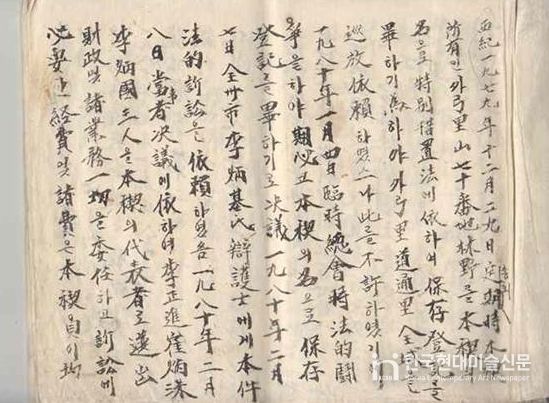 西紀一九七九年十二月二九日 定期時 本
所有인 外弓里 山七十番地 林野를 本稧
名으로 特別措置法에 依하여 保存登記를
畢하기 爲하야 外弓里 道通里 全
依賴하였으나 此를 不許하였기
一九八十年一月四日 臨時總會時 法的鬪
爭을 하야 期必고 本稧의 名으로 保存
登記를 畢하기로 决議 一九八十年二月
七日 全州市 李炳基氏 辯護士에게 本件
法的 訴訟을 依賴하였음 一九八十年二月
八日 當事者 决議에 依하여 李正進 崔炳洙
李炳國 三人을 本稧의 代表者로 選出
財政및 諸業務 一切을 委任하고 訴訟에
必要한 経費및 諸費은 本稧員이 均
한국현대미술신문
Korea Contemporary Art Newspaper